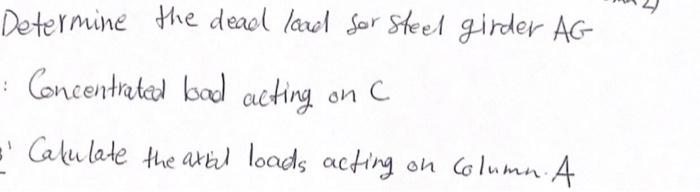 Determine the dead load for steel girder AG
: Concentrated load acting on C
Calculate the axial loads acting on column A